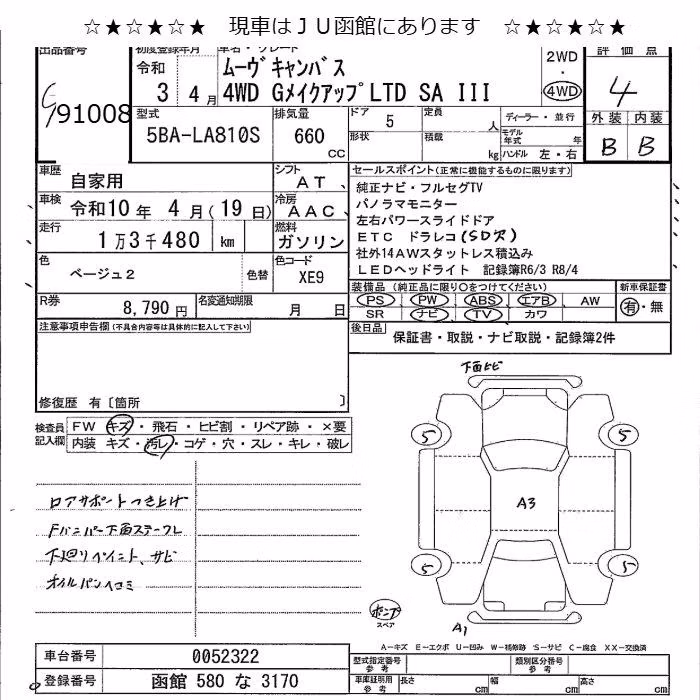 ☆★☆★☆★　現車はＪＵ函館にあります　☆★☆★☆★
出品番号
91008
初度登録年月
令和
3 4月
車名・グレード
ムーヴキャンバス
4WD GメイクアップLTD SA III
2WD
・
4WD
評価点
4
外装 内装
B B
型式
5BA-LA810S
排気量
660
CC
ドア
5
定員
人
形状
積載
kg
ディーラー・並行
モデル年式
年
ハンドル 左・右
車歴
自家用
シフト
AT、
車検
令和10年 4月(19日)
冷房
AAC
走行
1万3千480 km
燃料
ガソリン
色
ベージュ2
色替
色コード
XE9
R券
8,790円
名変通知期限
月 日
セールスポイント(正常に機能するものに限ります)
純正ナビ・フルセグTV
パノラマモニター
左右パワースライドドア
ETC ドラレコ(SD欠)
社外14AWスタットレス積込み
LEDヘッドライト 記録簿R6/3 R8/4
装備品 (純正品に限り○をつけてください)
PS PW ABS エアB AW
SR ナビ TV カワ
新車保証書
有・無
後日品
保証書・取説・ナビ取説・記録簿2件
注意事項申告欄(不具合内容等は具体的に記入して下さい)
修復歴 有〔箇所 〕
検査員記入欄
FW キズ・飛石・ヒビ割・リペア跡・×要
内装 キズ・汚レ・コゲ・穴・スレ・キレ・破レ
ロアサポートつき上げ
Fバンパー下面ステーワレ
下廻りペイント、サビ
オイルパンヘコミ
下面ヒビ
5
5
A3
5
5
ポンプ
スペア
A1
A－キズ E－エクボ U－凹み W－補修跡 S－サビ C－腐食 XX－交換済
車台番号
0052322
登録番号
函館 580 な 3170
型式指定番号
参考
類別区分番号
参考
車庫証明用
参考
長さ
cm
幅
cm
高さ
cm